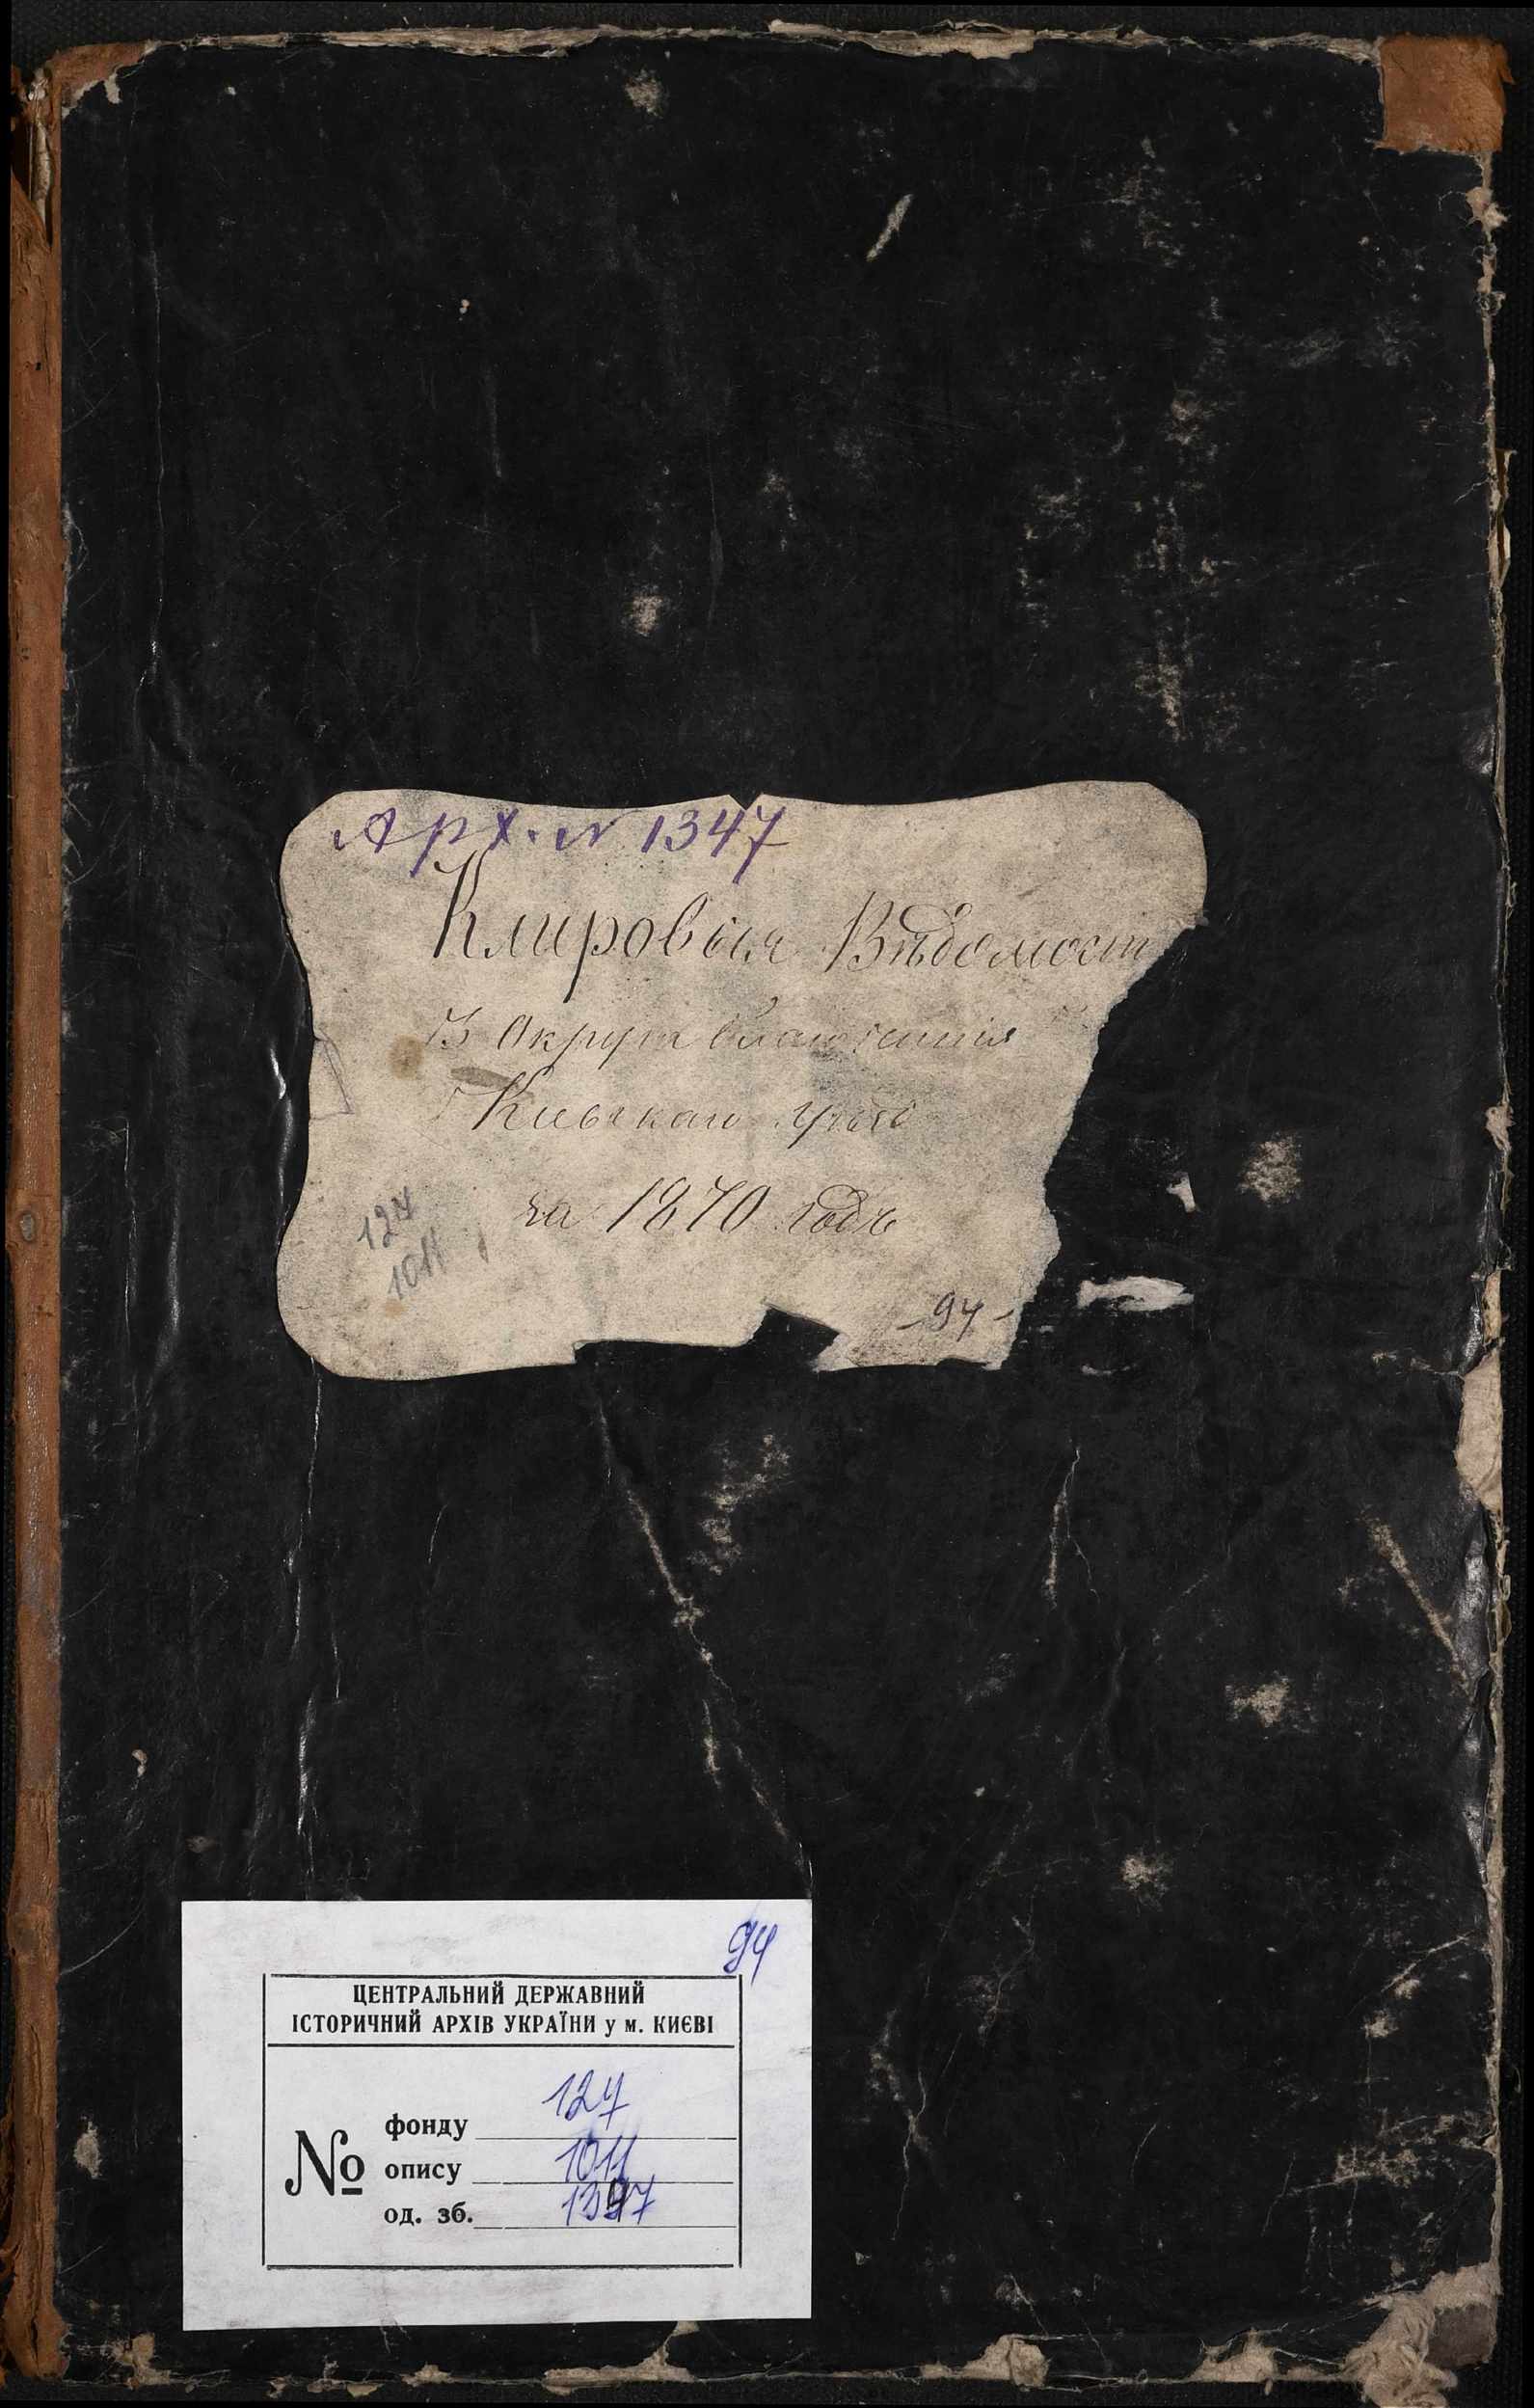 Арх. N 1347
Клировыя Вѣдомост
3 Округа благочинія
Кіевскаго уѣзда
за 1870 годъ
127
1011
- 94 -
94
ЦЕНТРАЛЬНИЙ ДЕРЖАВНИЙ
ІСТОРИЧНИЙ АРХІВ УКРАЇНИ у м. КИЄВІ
№
фонду 127
опису 1011
од. зб. 1347